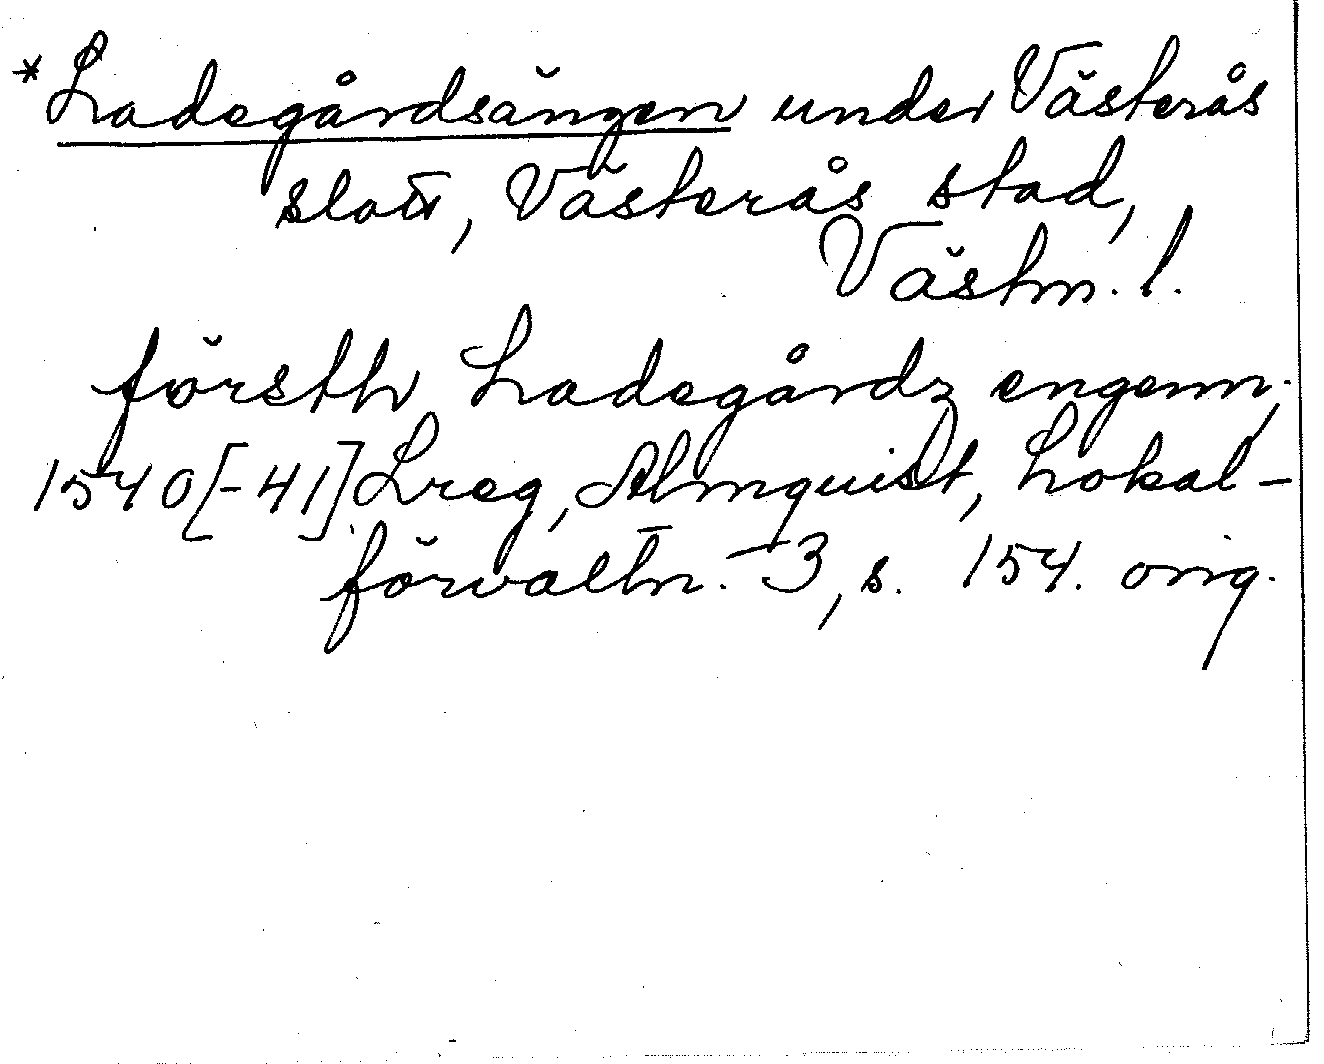 *Ladegårdsängen under Västerås
slott, Västerås stad,
Västm. l.
försth Ladegårdz engenn,
1540[-41] Lreg, Almquist, Lokal-
förvaltn. 3, s. 154. orig.